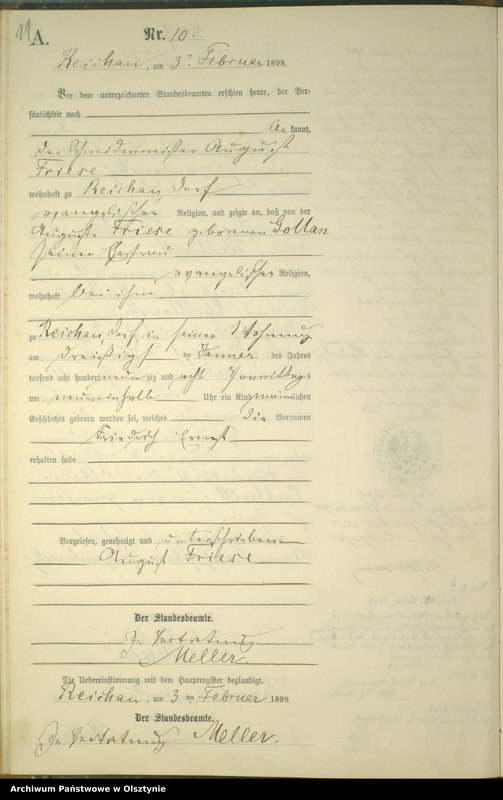 A.
Nr. 10.
Reichau, am 3ten Februar 1898.
Vor dem unterzeichneten Standesbeamten erschien heute, der Per-
sönlichkeit nach
be kannt,
der Schneidermeister August
Friese
wohnhaft zu Reichau Dorf
evangelischer Religion, und zeigte an, daß von der
Auguste Friese geborenen Gollan
seiner Ehefrau
evangelischer Religion,
wohnhaft bei ihm
zu Reichau Dorf, in seiner Wohnung
am dreißigsten Januar des Jahres
tausend acht hundert neun zig und acht Vormittags
um neuneinhalb Uhr ein Kind männlichen
Geschlechts geboren worden sei, welches die Vornamen
Friedrich Ernst
erhalten habe
Vorgelesen, genehmigt und unterschrieben
August Friese
Der Standesbeamte.
In Vertretung
Meller
Die Uebereinstimmung mit dem Hauptregister beglaubigt.
Reichau, am 3 ten Februar 1898
Der Standesbeamte.
In Vertretung Meller.
Archiwum Państwowe w Olsztynie